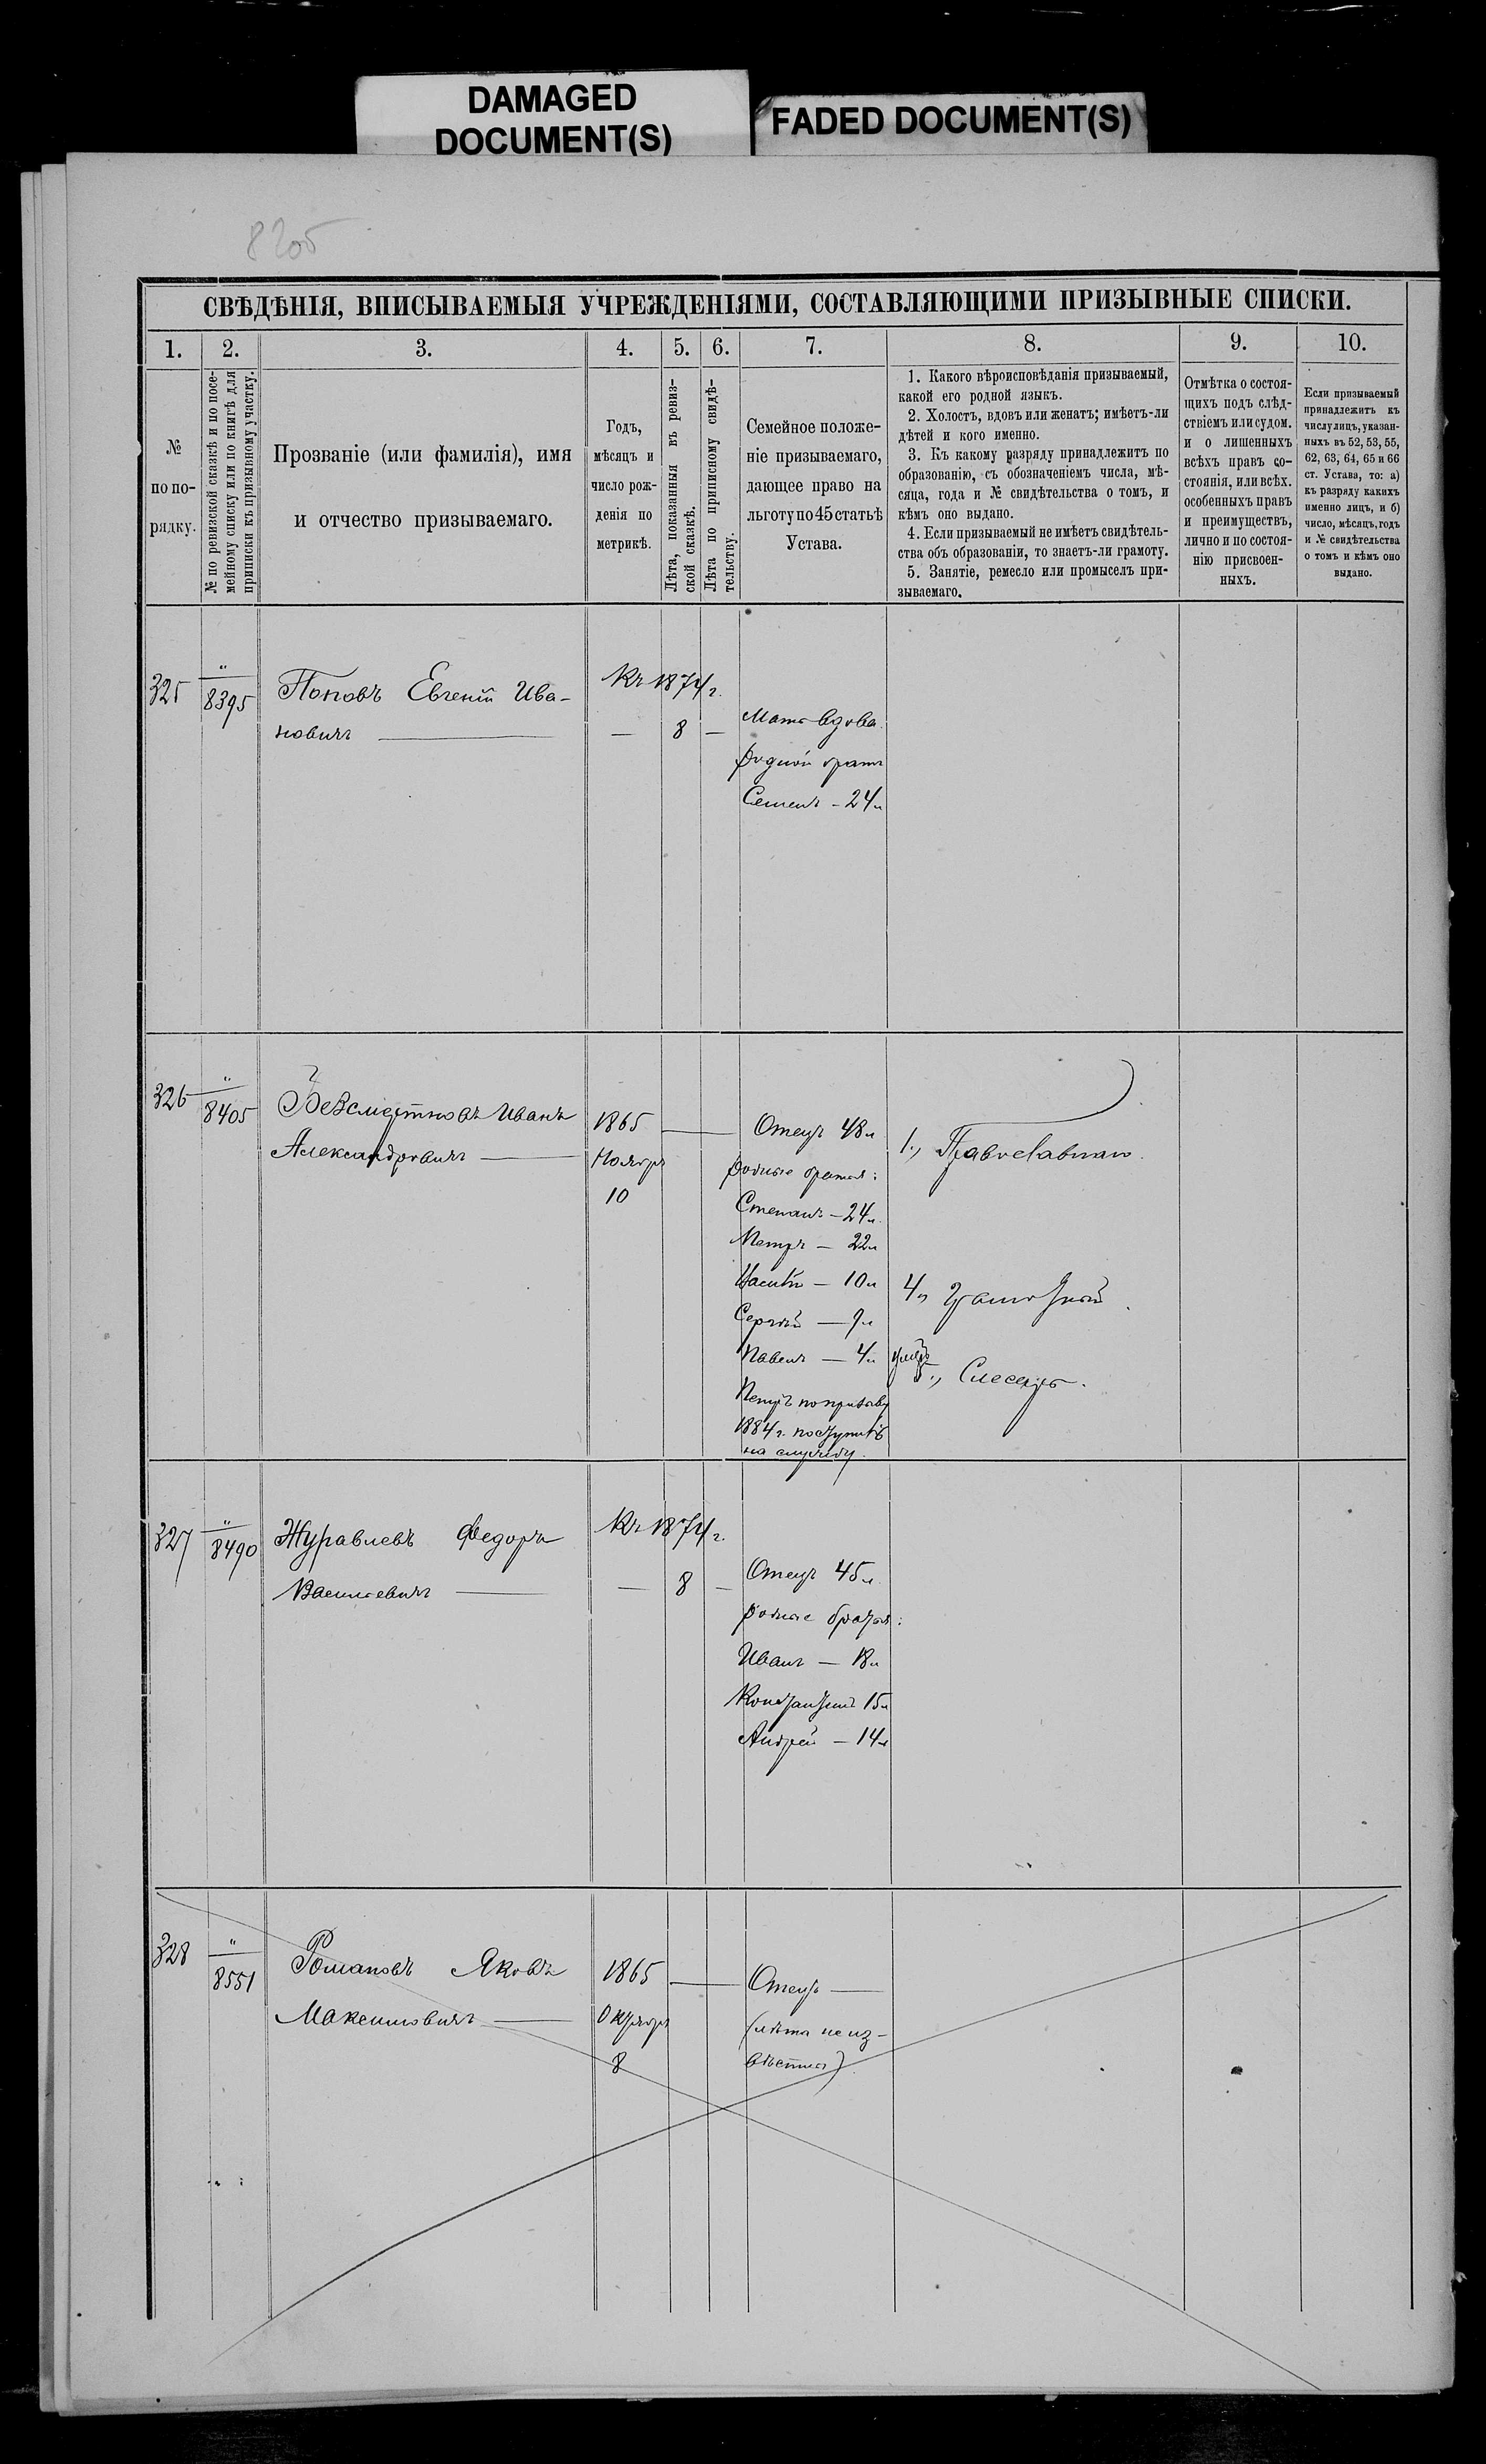 DAMAGED
DOCUMENT(S)
FADED DOCUMENT(S)
8205
СВѢДѢНІЯ, ВПИСЫВАЕМЫЯ УЧРЕЖДЕНІЯМИ, СОСТАВЛЯЮЩИМИ ПРИЗЫВНЫЕ СПИСКИ.
1.
2.
3.
4.
5.
6.
7.
8.
9.
10.
№
по по-
рядку.
№ по ревизской сказкѣ и по посе-
мейному списку или по книгѣ для
приписки къ призывному участку.
Прозваніе (или фамилія), имя
и отчество призываемаго.
Годъ,
мѣсяцъ и
число рож-
денія по
метрикѣ.
Лѣта, показанныя въ ревиз-
ской сказкѣ.
Лѣта по приписному свидѣ-
тельству.
Семейное положе-
ніе призываемаго,
дающее право на
льготу по 45 статьѣ
Устава.
1. Какого вѣроисповѣданія призываемый,
какой его родной языкъ.
2. Холостъ, вдовъ или женатъ; имѣетъ-ли
дѣтей и кого именно.
3. Къ какому разряду принадлежитъ по
образованію, съ обозначеніемъ числа, мѣ-
сяца, года и № свидѣтельства о томъ, и
кѣмъ оно выдано.
4. Если призываемый не имѣетъ свидѣтель-
ства объ образованіи, то знаетъ-ли грамоту.
5. Занятіе, ремесло или промыселъ при-
зываемаго.
Отмѣтка о состоя-
щихъ подъ слѣд-
ствіемъ или судом.
и о лишенныхъ
всѣхъ правъ со-
стоянія, или всѣх.
особенныхъ правъ
и преимуществъ,
лично и по состоя-
нію присвоен-
ныхъ.
Если призываемый
принадлежитъ къ
числу лицъ, указан-
ныхъ въ 52, 53, 55,
62, 63, 64, 65 и 66
ст. Устава, то: а)
къ разряду какихъ
именно лицъ, и б)
число, мѣсяцъ, годъ
и № свидѣтельства
о томъ и кѣмъ оно
выдано.
325
"
8395
Поповъ Евгеній Ива-
новичъ —
Къ 1874 г.
— 8 —
Мать вдова.
родной братъ
Семенъ - 24 л
326
"
8405
Безсмертновъ Иванъ
Александровичъ —
1865 —
Ноябрь
10
Отецъ 48 л
родные братья:
Степанъ — 24 л.
Петръ — 22 л
Василій — 10 л
Сергѣй — 9 л
Павелъ — 4 л умеръ
Петръ по призыву
1884 г. поступилъ
на службу.
1., Православнаго.
4., Грамотный.
5., Слесарь.
327
"
8490
Журавлевъ Федоръ
Васильевичъ —
Къ 1874 г.
— 8 —
Отецъ 45 л.
родные братья:
Иванъ — 18 л
Константинъ 15 л
Андрей — 14 л
328
"
8551
Романовъ Яковъ
Максимовичъ —
1865 —
Октябрь
8
Отецъ —
(лѣта неиз-
вѣстны)